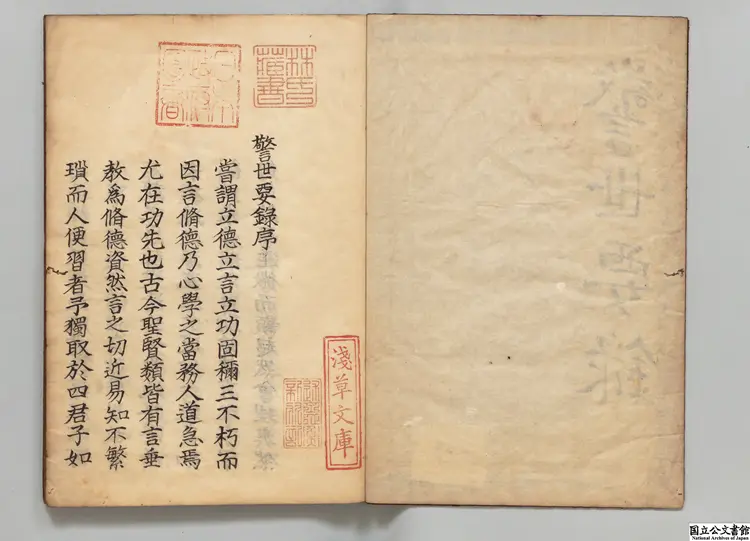 林氏
藏書
日本
政府
圖書
警世要錄序
嘗謂立德立言立功固穪三不朽而
因言脩德乃心學之當務人道急焉
尤在功先也古今聖賢類皆有言垂
教為脩德資然言之切近易知不繁
瑣而人便習者予獨取於四君子如
淺草文庫
国立公文書館
National Archives of Japan